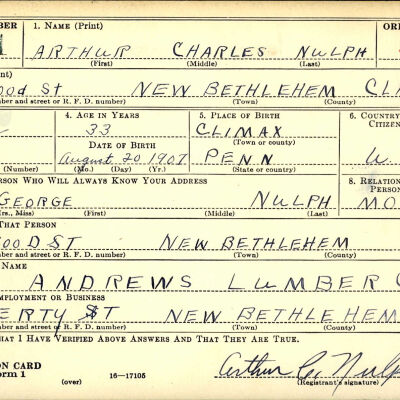 BER 1. NAME (Print) OR
ARTHUR CHARLES NULPH
(First) (Middle) (Last)
nt)
OOD ST NEW BETHLEHEM CL
mber and street or R. F. D. number) (Town) (County)
4. AGE IN YEARS 5. PLACE OF BIRTH 6. COUNTRY
33 CLIMAX CITIZEN
DATE OF BIRTH (Town or county)
August 20 1907 PENN U
(Number) (Mo.) (Day) (Yr.) (State or country)
ERSON WHO WILL ALWAYS KNOW YOUR ADDRESS 8. RELATION
PERSON
GEORGE NULPH MO
rs., Miss) (First) (Middle) (Last)
THAT PERSON
OOD ST NEW BETHLEHEM
mber and street or R. F. D. number) (Town) (County)
NAME
ANDREWS LUMBER C
MPLOYMENT OR BUSINESS
ERTY ST NEW BETHLEHEM
mber and street or R. F. D. number) (Town) (County)
HAT I HAVE VERIFIED ABOVE ANSWERS AND THAT THEY ARE TRUE.
ON CARD
orm 1 (over) 16—17105 Arthur C. Nulp
(Registrant's signature)